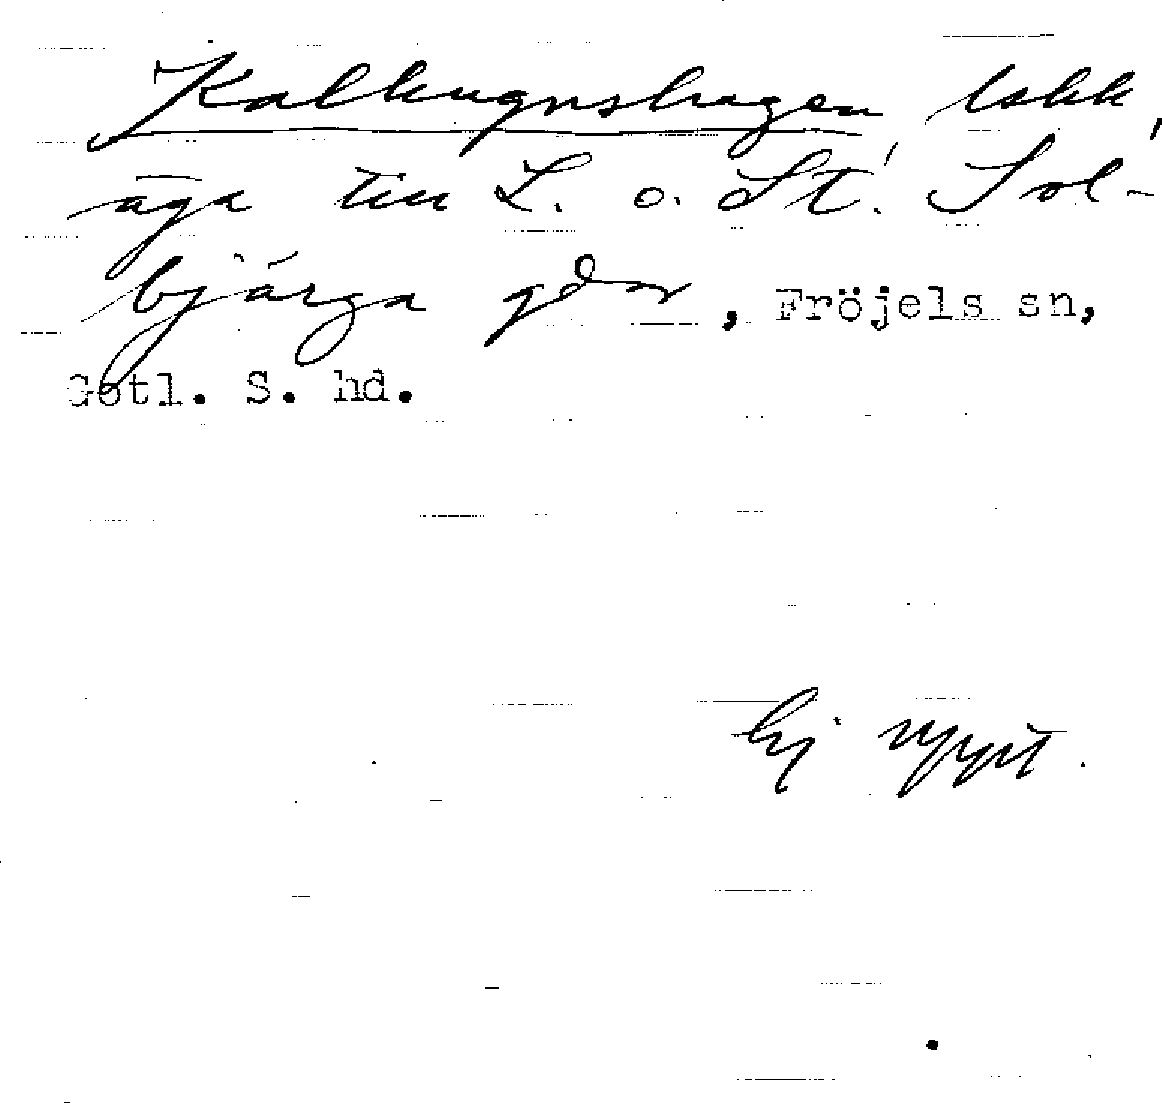 Kalkugnshagen, lakk,
äga till L. o. St. Sol-
bjärga gdar, Fröjels sn,
Gotl. S. hd.
Ej uppt.